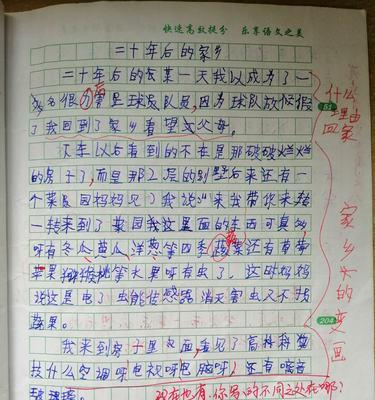 快速高效提分 乐享语文之美
二十年后的家乡
二十年后的某一天我以成为了一
名很 星球员队员,因为球队放假
了我回到了家乡看望父母。
下车以后看到的不在是那破破烂烂
的房子了,而是那2层的别墅后来还有一
个菜园妈妈见了我说 来我带你来转
一转来到了菜园我这里面的东西可真
呀有冬瓜黄瓜洋葱等四季蔬菜还有草莓
苹果猕猴桃等水果呀有虫了,这时妈妈
说这是电子虫能传感器消灭害虫又不
蔬果。
我来到房子里面看见了高科科
技什么空调呀电视呀电脑呀,还有
玻璃
51
什么理由回家
家乡的变画
204
现在也有,你写的不同之处在哪?